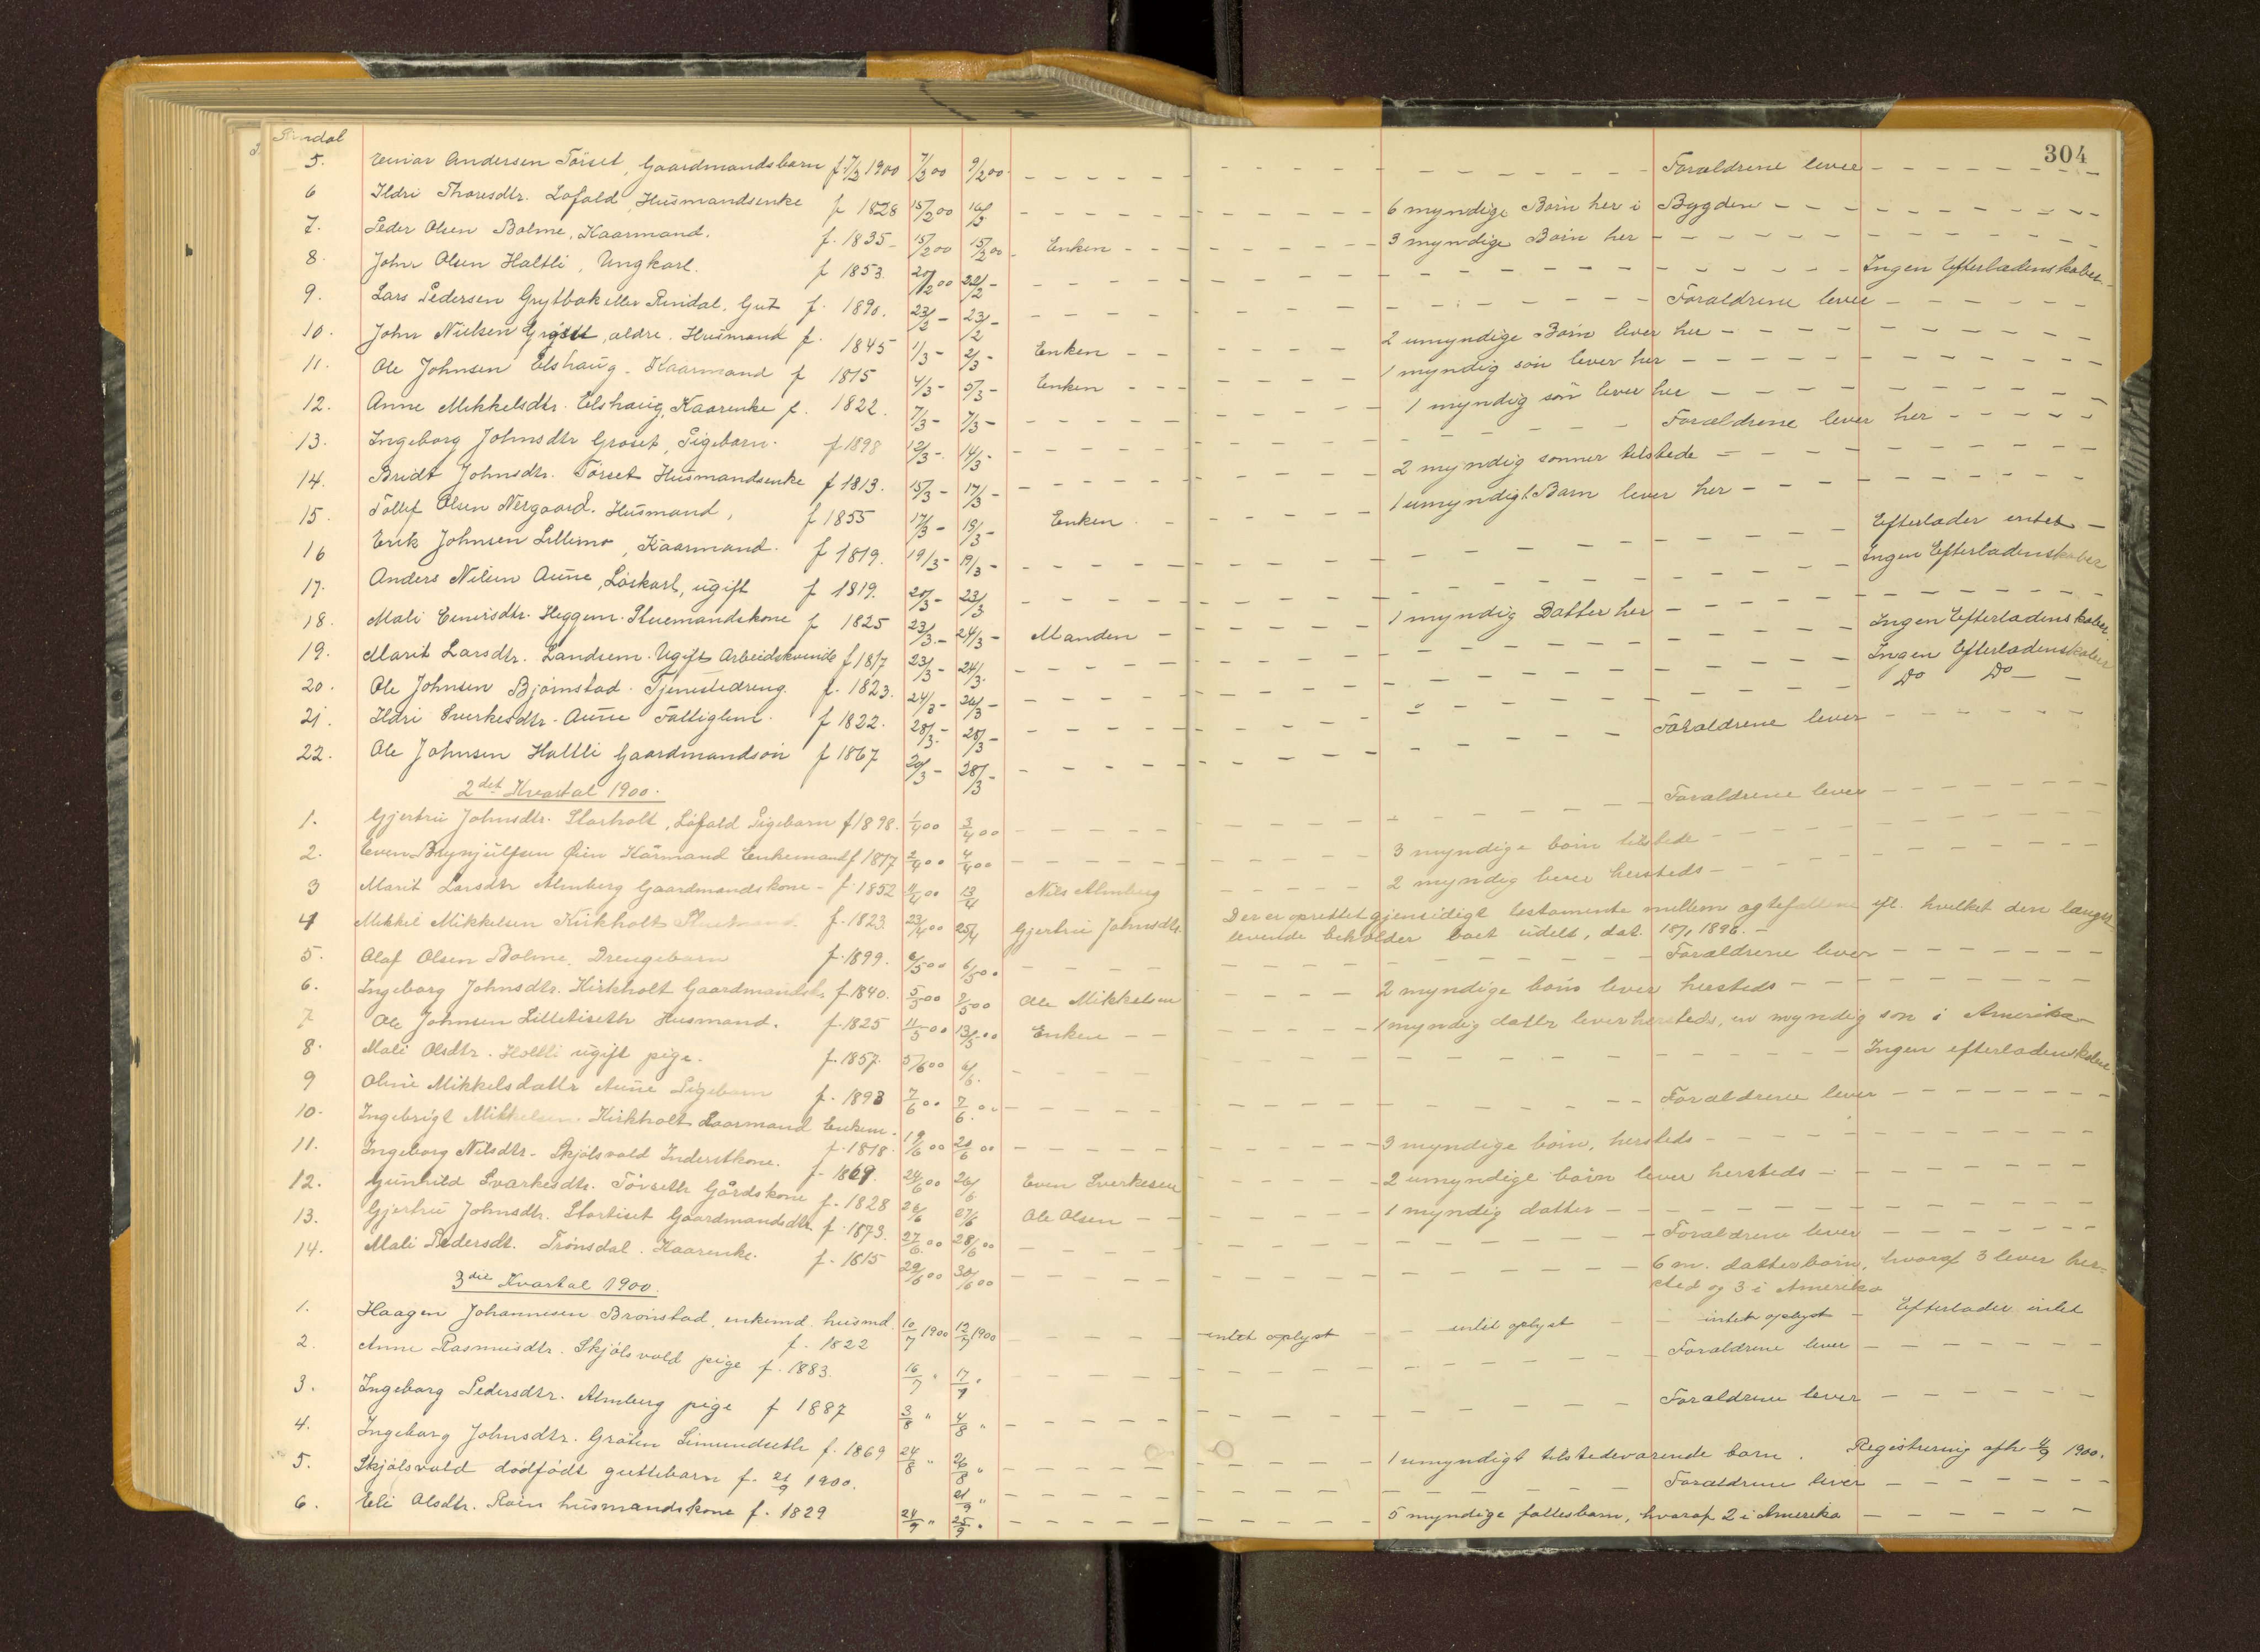 304
Rindal
5. Einar Andersen Törset, Gaardmandsbarn f. 7/2 1900 7/2 00 9/2 00 Forældrene lever
6 Ildri Thoresdtr. Lofald, Husmandsenke f 1828 15/2 00 16/2 6 myndige Börn her i Bygden
7. Peder Olsen Bolme, Kaarmand. f. 1835 15/2 00 15/2 00 Enken 3 myndige Börn her
8. John Olsen Haltli, Ungkarl. f 1853. 20/2 00 22/2 Ingen Efterladenskaber
9. Lars Pedersen Grytbak eller Rindal. Gut f. 1890. 23/2 23/2 Forældrene lever
10. John Nielsen ældre. Husmand f. 1845 1/3 2/3 Enken 2 umyndige Börn lever her
11. Ole Johnsen Elshaug. Kaarmand f 1815 4/3 5/3 Enken 1 myndig sön lever her
12. Anne Mikkelsdtr. Elshaug, Kaarenke f. 1822. 7/3 7/3 1 myndig sön lever her
13. Ingeborg Johnsdtr Gröset, Pigebarn. f 1898 12/3 14/3 Forældrene lever her
14. Bridt Johnsdtr. Törset Husmandsenke f 1813. 15/3 17/3 2 myndig sönner tilstede
15. Tollef Olsen Nergaard. Husmand, f 1855 17/3 19/3 Enken 1 umyndigt Barn lever her
16 Erik Johnsen Lillemo, Kaarmand. f 1819. 19/3 19/3 Efterlader intet
17. Anders Nilsen Aune, Löskarl, ugift f 1819. 20/3 23/3 Ingen Efterladenskaber
18. Mali Einersdtr. Heggem. Stuemandskone f 1825 23/3 24/3 Manden 1 myndig Datter her
19. Marit Larsdtr. Landsem. Ugift Arbeidskvinde f 1817 23/3 24/3. Ingen Efterladenskaber.
20. Ole Johnsen Björnstad. Tjenestedreng. f. 1823. 24/3 26/3 Ingen Efterladenskaber
21. Ildri Sverkesdtr. Aune Fattiglem. f 1822. 28/3. 28/3 Do Do
22. Ole Johnsen Haltli Gaardmandsön f 1867 20/3 28/3 Forældrene lever
2det Kvartal 1900.
1. Gjertru Johnsdtr. Storholt, Löfald Pigebarn f 1898. 1/4 00 3/4 00 Forældrene lever
2. Even Brynjulfsen Öien Kårmand Enkemand f 1817 2/4 00 4/4 00 3 myndige börn tilstede
3 Marit Larsdtr Almberg Gaardmandskone f. 1852 11/4 00 13/4 Nils Almberg 2 myndig lever hersteds
4 Mikkel Mikkelsen Kirkholt f. 1823. 23/4 00 25/4 Gjertru Johnsdtr. Der er oprettet gjensidigt testamente mellem ægtefællene efl. hvilket den længst
levende beholder boet udelt, dat. 18/1 1896.
5. Olaf Olsen Bolme. Drengebarn f. 1899. 6/5 00 6/5 00 Forældrene lever
6. Ingeborg Johnsdtr. Kirkholt Gaardmandsk. f 1840. 5/5 00 7/5 00 Ole Mikkelsen 2 myndige börn lever hersteds
7 Ole Johnsen Lilletiseth Husmand. f. 1825 11/5 00 13/5 00 Enken 1 myndig datter lever hersteds, en myndig sön i Amerika
8. Mali Olsdtr. Haltli ugift pige. f. 1857. 5/6 00 6/6. Ingen efterladenskaber.
9 Oline Mikkelsdattr Aune Pigebarn f. 1893 7/6 00 7/6 00 Forældrene lever
10. Ingebrigt Mikkelsen. Kirkholt Kaarmand Enkem. f. 1818 19/6 00 20/6 00 3 myndige börn, hersteds
11. Ingeborg Nilsdtr. Skjölsvold Inderstkone. f. 1869. 24/6 00 26/6 Even Sverkesen 2 umyndige börn lever hersteds
12. Gunhild Sverkesdtr. Törseth Gårdskone f. 1828 26/6 27/6 Ole Olsen 1 myndig datter
13. Gjertru Johnsdtr. Stortiset Gaardmandsdtr f. 1873. 27/6 00 28/6 00 Forældrene lever
14. Mali Pedersdt. Trönsdal. Kaarenke. f. 1815 29/6 00 30/6 00 6 m. datterbörn, hvoraf 3 lever her-
sted og 3 i Amerika
3die Kvartal 1900.
1. Haagen Johannesen Brönstad, enkemd. husmd. f. 1822 10/7 1900 12/7 1900 intet oplyst intet oplyst intet oplyst Efterlader intet
2. Anne Rasmusdtr. Skjölsvold pige f. 1883. 16/7 " 17/7 " Forældrene lever
3. Ingeborg Pedersdtr. Almberg pige f 1887 3/8 " 4/8 " Forældrene lever
4. Ingeborg Johnsdtr. Gråten Simundseth f. 1869 24/8 " 26/8 " 1 umyndigt tilstedeværende barn. Registrering afh 4/9 1900.
5. Skjölsvold dödfödt guttebarn f. 21/9 1900. 21/9 " Forældrene lever
6. Eli Olsdtr. Röen husmandskone f. 1829 24/9 " 25/9 " 5 myndige fællesbarn, hvoraf 2 i Amerika